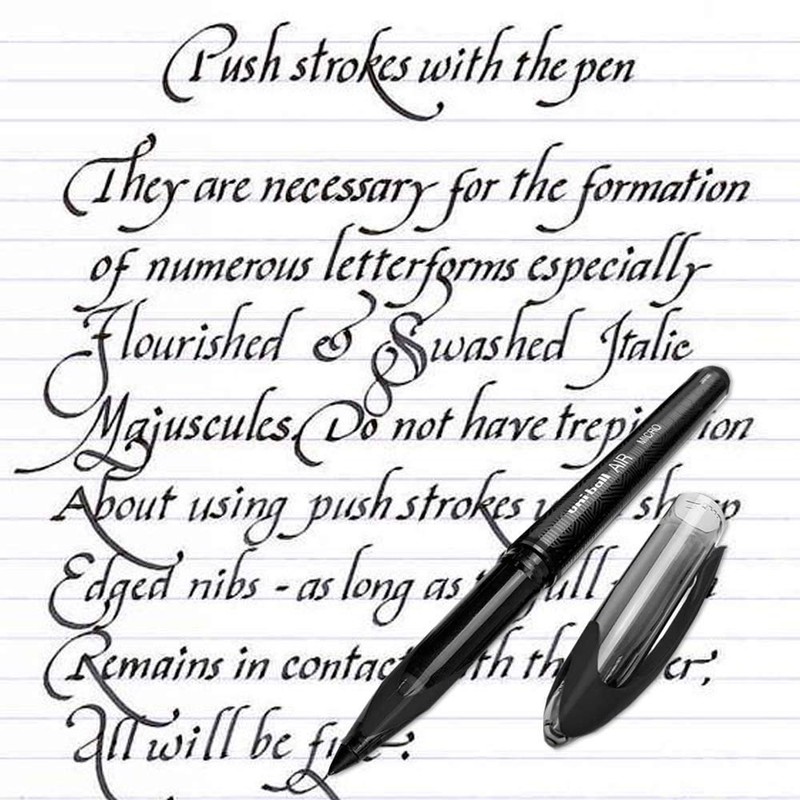 Push strokes with the pen
They are necessary for the formation
of numerous letterforms especially
Flourished & Swashed Italic
Majuscules. Do not have
About using push strokes
Edged nibs - as long as
Remains in
All will be
uni-ball AIR MICRO